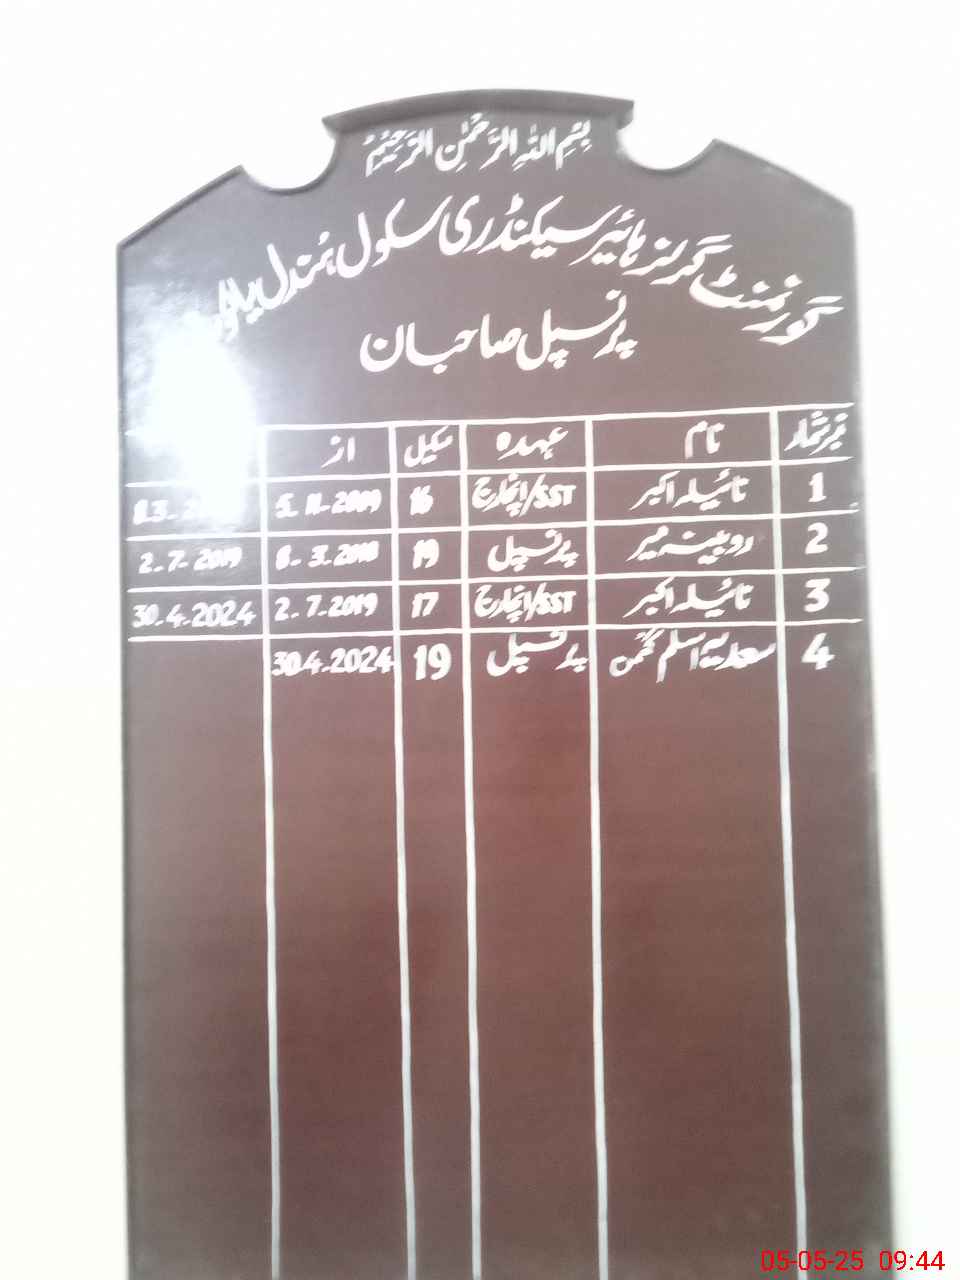 بِسْمِ اللّٰهِ الرَّحْمٰنِ الرَّحِيْمِ
گورنمنٹ گرلز ہائیر سیکنڈری سکول ہُندل
پرنسپل صاحبان
نمبر شمار نام عہدہ سکیل از
1 نائیلہ اکبر SST/انچارج 16 5-11-2009
2 روبینہ میر پرنسپل 19 8-3-2010 2-7-2019
3 نائیلہ اکبر SST/انچارج 17 2-7-2019 30-4-2024
4 سعدیہ اسلم گھمن پرنسپل 19 30.4-2024
05-05-25 09:44